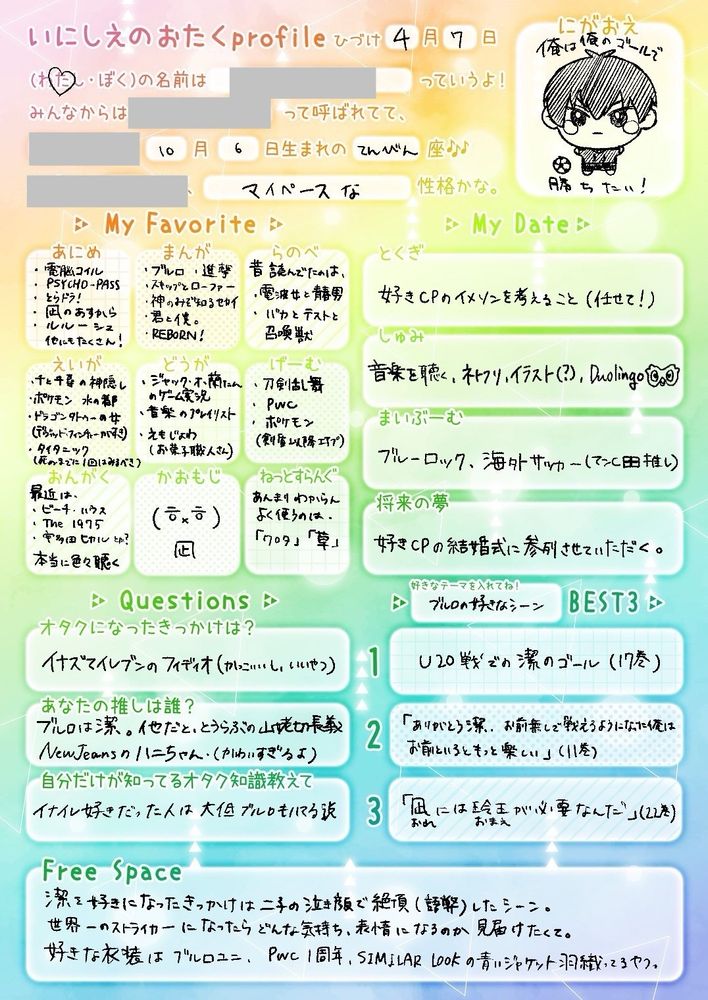 いにしえのおたくprofile ひづけ 4月7日
にがおえ
俺は俺のゴールで
勝ちたい！
(わたし・ぼく)の名前は っていうよ！
みんなからは って呼ばれてて、
10月6日生まれの てんびん 座♪♪
、マイペースな 性格かな。
My Favorite
あにめ
・電脳コイル
・PSYCHO-PASS
・とらドラ！
・凪のあすから
・ルルーシュ
他にもたくさん！
まんが
・ブルロ ・進撃
・スキップとローファー
・神のみぞ知るセカイ
・君と僕。
・REBORN！
らのべ
昔読んでたのは、
・電波女と青春男
・バカとテストと
召喚獣
えいが
・千と千尋の神隠し
・ポケモン 水の都
・ドラゴンタトゥーの女
(デヴィッド・フィンチャーが好き)
・タイタニック
(死ぬまでに1回はみるべき)
どうが
・ジャック・オ・蘭たん
のゲーム実況
・音楽のプレイリスト
・えもじょわ
(お菓子職人さん)
げーむ
・刀剣乱舞
・PWC
・ポケモン
(剣盾以降エアプ)
おんがく
最近は、
・ビーチ・ハウス
・The 1975
・宇多田ヒカル とか？
本当に色々聴く
かおもじ
(ㅎ×ㅎ)
凪
ねっとすらんぐ
あんまりわからん
よく使うのは、
「ワロタ」「草」
My Date
とくぎ
好きCPのイメソンを考えること (任せて！)
しゅみ
音楽を聴く、ネトフリ、イラスト(？)、Duolingo
まいぶーむ
ブルーロック、海外サッカー(マンC推し)
将来の夢
好きCPの結婚式に参列させていただく。
Questions
オタクになったきっかけは？
イナズマイレブンのフィディオ (かっこいいし、いいやつ)
あなたの推しは誰？
ブルロは潔。他だと、とうらぶの山姥切長義
NewJeansのハニちゃん。(かわいすぎるよ)
自分だけが知ってるオタク知識教えて
イナイレ好きだった人は大低ブルロもハマる説
好きなテーマを入れてね！
ブルロの好きなシーン BEST3
1 U20戦での潔のゴール (17巻)
2 「ありがとう潔、お前無しで戦えるようになった俺は
お前といるともっと楽しい」(11巻)
3 「凪には玲王が必要なんだ」(22巻)
おれ おまえ
Free Space
潔を好きになったきっかけは二子の泣き顔で絶頂(語弊)したシーン。
世界一のストライカーになったらどんな気持ち、表情になるのか見届けたくて。
好きな衣装はブルロユニ、PWC 1周年、SIMILAR LOOKの青いジャケット羽織ってるやつ。